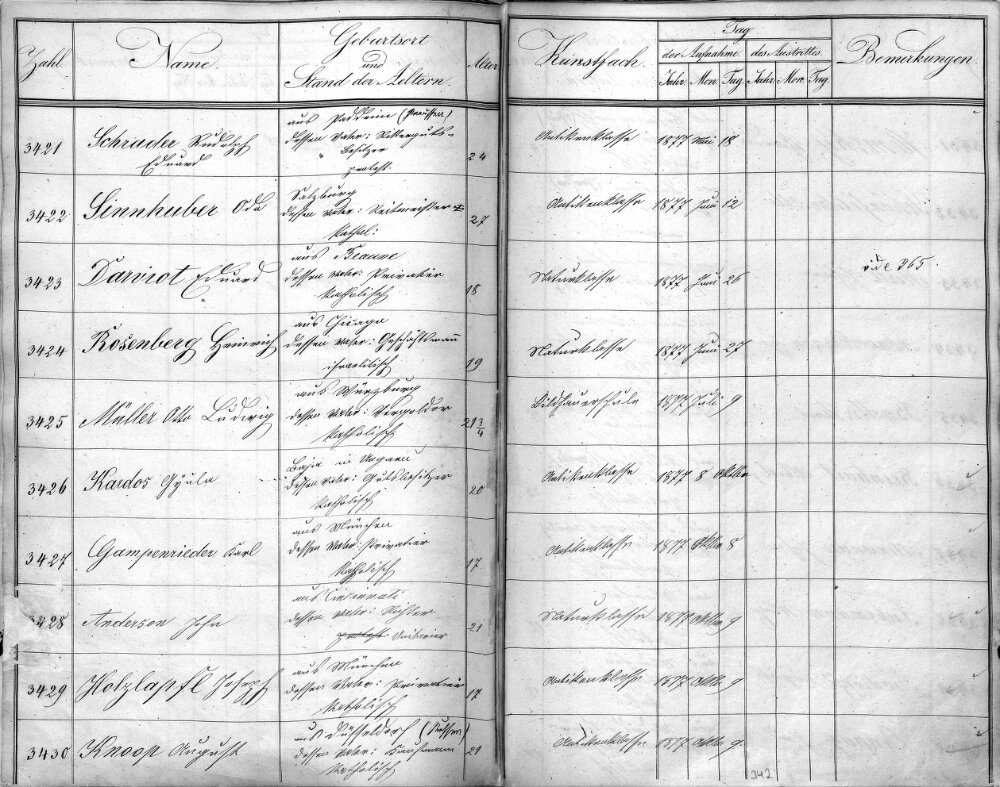 Zahl. Name. Geburtsort und Stand der Aeltern. Alter Kunstfach. Tag der Aufnahme des Austrittes. Bemerkungen.
Jahr Mon Tag Jahr Mon Tag
3421 Schrader Rudolph Eduard
aus (Preussen)
dessen Vater: Ritterguts-
Besitzer
protest. 24
Antikenklasse 1877 Mai 18
3422 Sinnhuber Oda
Salzburg
dessen Vater: Rittmeister
kathol: 27
Antikenklasse 1877 Juni 12
3423 Darviot Eduard
aus Beaune
dessen Vater: Privatier
katholisch 18
Naturklasse 1877 Juni 26 vide 365.
3424 Rosenberg Heinrich
aus Chicago
dessen Vater: Geschäftsmann
israelitisch 19
Naturklasse 1877 Juni 27
3425 Müller Otto Ludwig
aus Würzburg
dessen Vater: Vergolder
katholisch 21 3/4
Bildhauerschule 1877 Juli 9
3426 Kardos Gyula
Baja in Ungarn
dessen Vater: Gutsbesitzer
katholisch 20
Antikenklasse 1877 8 Oktbr
3427 Gampenrieder Karl
aus München
dessen Vater: Privatier
katholisch 17
Antikenklasse 1877 Oktbr 8
3428 Anderson John
aus Cincinnati
dessen Vater: Richter
protest. Unitarier 21
Naturklasse 1877 Oktbr 9
3429 Holzlapfl Joseph
aus München
dessen Vater: Privatier
katholisch 17
Antikenklasse 1877 Oktbr 9
3430 Knoop August
aus Düsseldorf
dessen Vater: Kaufmann
katholisch 21
Antikenklasse 1877 Oktbr 9.
342